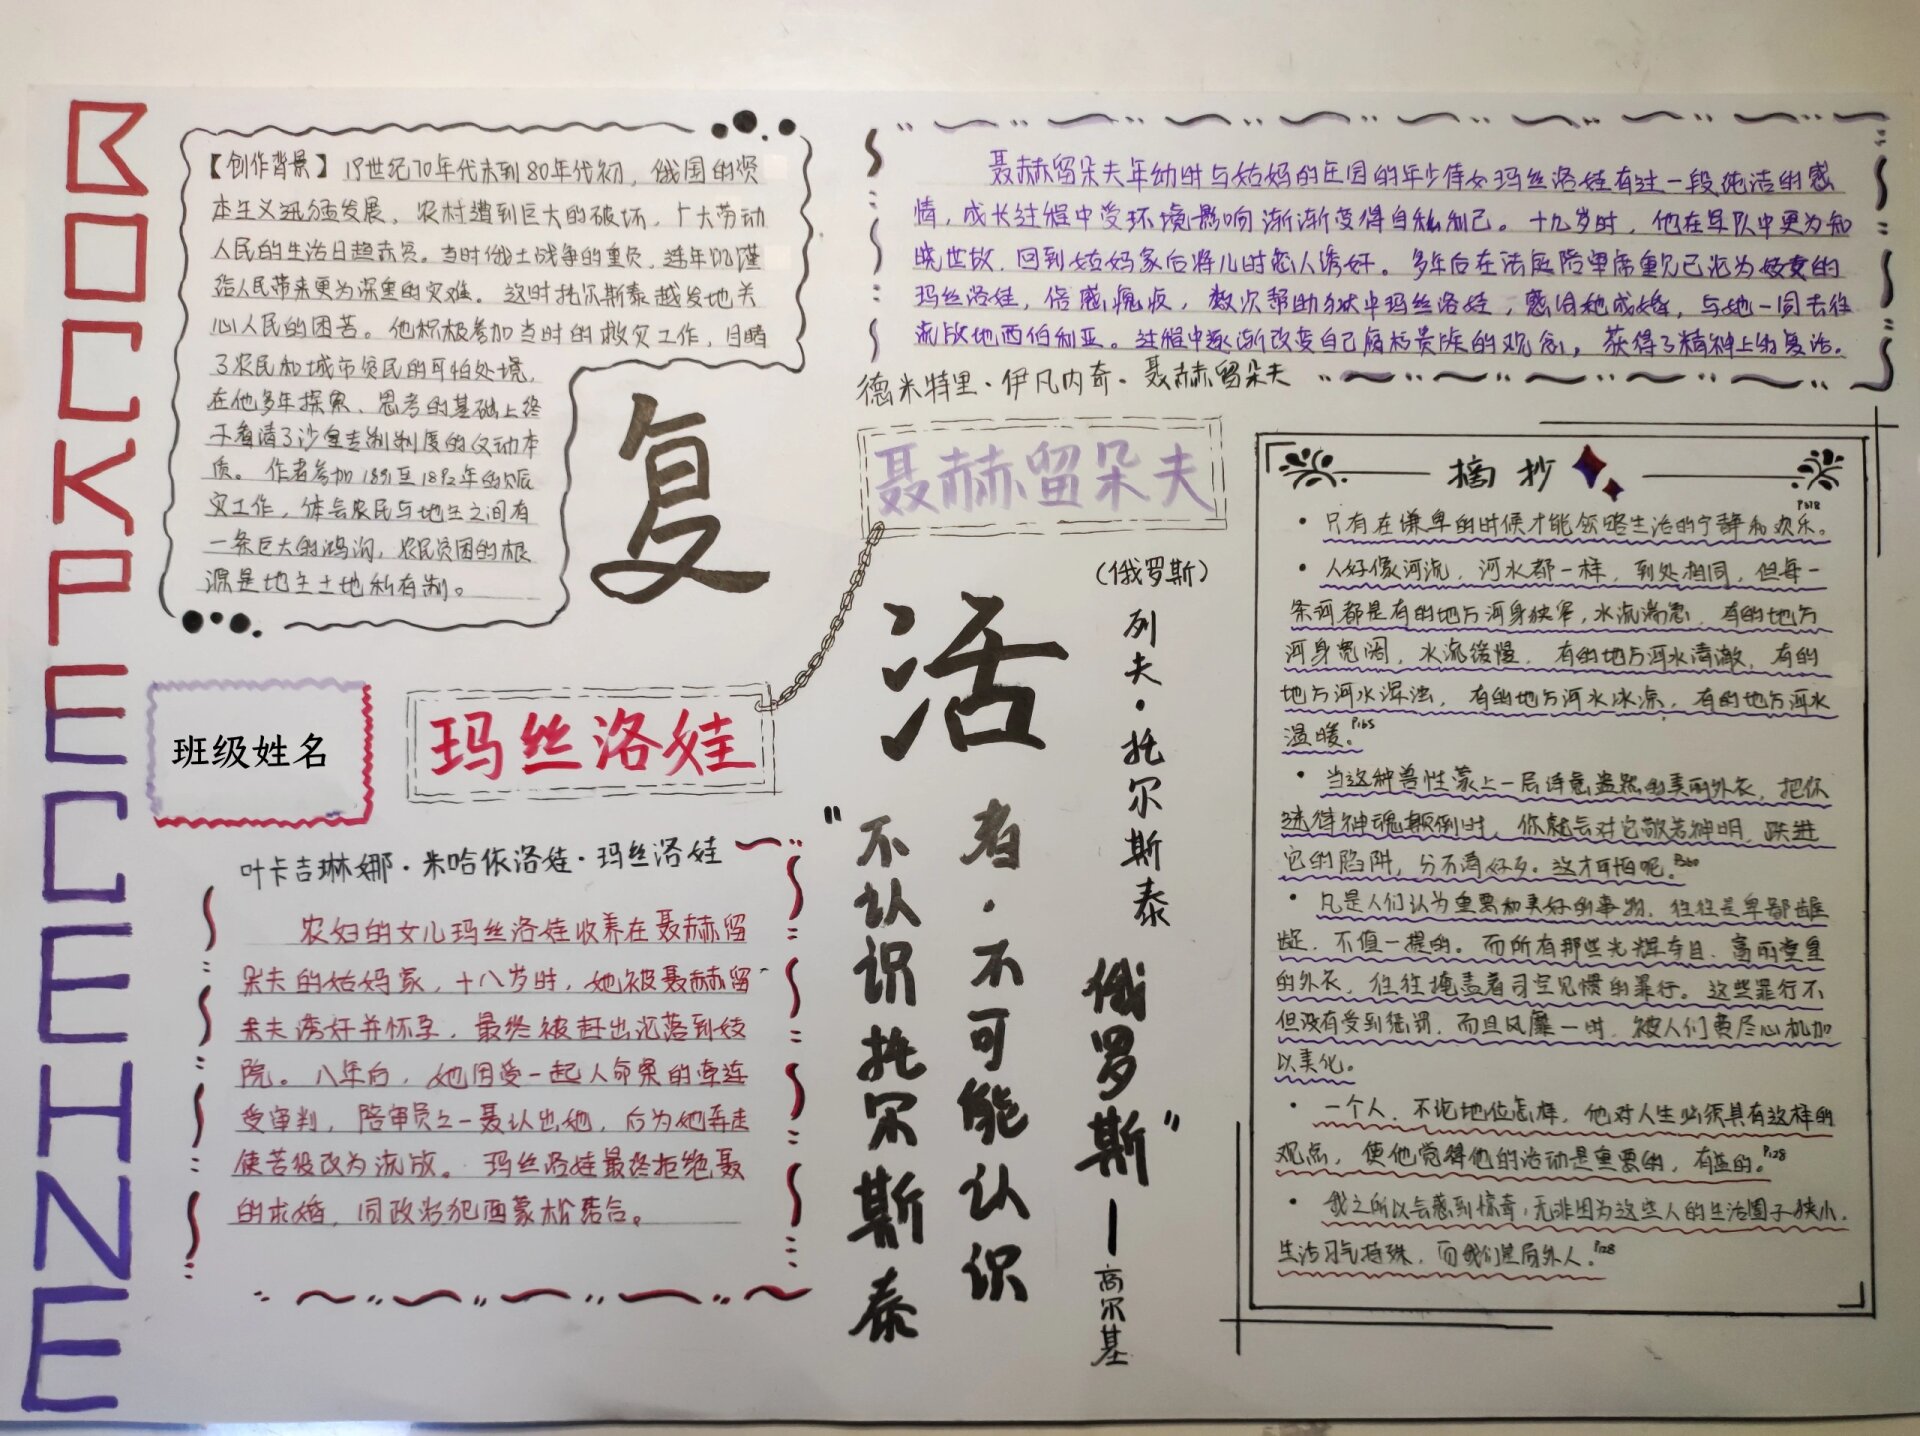 ВОСКРЕСЕНЬЕ
【创作背景】19世纪70年代末到80年代初，俄国的资
本主义迅猛发展，农村遭到巨大的破坏，广大劳动
人民的生活日趋赤贫。当时俄土战争的重负，连年饥馑
给人民带来更为深重的灾难。这时托尔斯泰越发地关
心人民的困苦。他积极参加当时的救灾工作，目睹
了农民和城市贫民的可怕处境，
在他多年探索、思考的基础上终
于看清了沙皇专制制度的反动本
质。作者参加1891至1892年的赈
灾工作，体会农民与地主之间有
一条巨大的鸿沟，农民贫困的根
源是地主土地私有制。
聂赫留朵夫年幼时与姑妈的庄园的年少侍女玛丝洛娃有过一段纯洁的感
情，成长过程中受环境影响渐渐变得自私利己。十九岁时，他在军队中更为知
晓世故，回到姑妈家后将儿时恋人诱奸。多年后在法庭陪审席重见已沦为妓女的
玛丝洛娃，倍感愧疚，数次帮助狱中玛丝洛娃，感召她成婚，与她一同去往
流放地西伯利亚。过程中逐渐改变自己腐朽贵族的观念，获得了精神上的复活。
德米特里·伊凡内奇·聂赫留朵夫
聂赫留朵夫
复
活
（俄罗斯）
列夫·托尔斯泰
班级姓名
玛丝洛娃
叶卡吉琳娜·米哈依洛娃·玛丝洛娃
农妇的女儿玛丝洛娃收养在聂赫留
朵夫的姑妈家，十八岁时，她被聂赫留
朵夫诱奸并怀孕，最终被赶出沦落到妓
院。八年后，她因受一起人命案的牵连
受审判，陪审员之一聂认出她，后为她奔走
使苦役改为流放。玛丝洛娃最终拒绝聂
的求婚，同政治犯西蒙松结合。
“不认识托尔斯泰
者·不可能认识
俄罗斯”
—高尔基
摘抄
·只有在谦卑的时候才能领略生活的宁静和欢乐。P618
·人好像河流，河水都一样，到处相同，但每一
条河都是有的地方河身狭窄，水流湍急，有的地方
河身宽阔，水流缓慢，有的地方河水清澈，有的
地方河水浑浊，有的地方河水冰凉，有的地方河水
温暖。P165
·当这种兽性蒙上一层诗意盎然的美丽外衣，把你
迷得神魂颠倒时，你就会对它敬若神明，跌进
它的陷阱，分不清好歹。这才可怕呢。P360
·凡是人们认为重要和美好的事物，往往是卑鄙龌
龊，不值一提的。而所有那些光辉夺目、富丽堂皇
的外衣，往往掩盖着司空见惯的罪行。这些罪行不
但没有受到惩罚，而且风靡一时，被人们费尽心机加
以美化。
·一个人，不论地位怎样，他对人生必须具有这样的
观点，使他觉得他的活动是重要的，有益的。P128
·我之所以会感到惊奇，无非因为这些人的生活圈子狭小，
生活习气特殊，而我们是局外人。P128